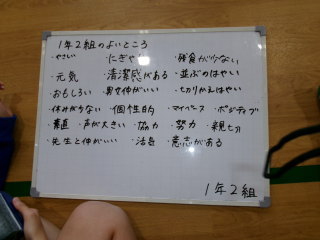 1年2組のよいところ
・やさしい ・にぎやか ・残食が少ない
・元気 ・清潔感がある ・並ぶのはやい
・おもしろい ・男女仲がいい ・切りかえはやい
・休みが少ない ・個性的 ・マイペース ・ポジティブ
・素直 ・声が大きい ・協力 ・努力 ・親切
・先生と仲がいい ・活発 ・意志がある
1年2組